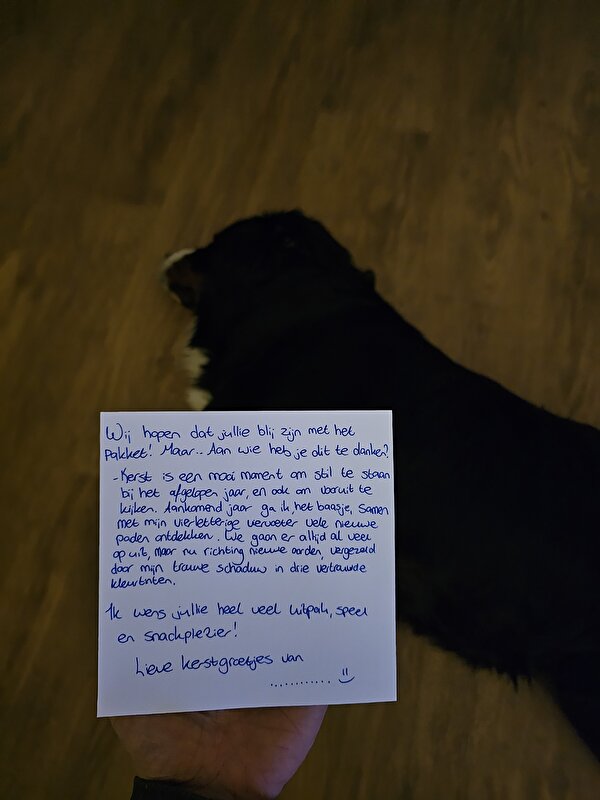 Wij hopen dat jullie blij zijn met het
pakket! Maar.. Aan wie heb je dit te danken?
- Kerst is een mooi moment om stil te staan
bij het afgelopen jaar, en ook om vooruit te
kijken. Aankomend jaar ga ik, het baasje, samen
met mijn vierletterige viervoeter vele nieuwe
paden ontdekken. We gaan er altijd al veel
op uit, maar nu richting nieuwe oorden, vergezeld
door mijn trouwe schaduw in drie vertrouwde
kleurtinten.
Ik wens jullie heel veel uitpak, speel
en snackplezier!
Lieve kerstgroetjes van
............ :)